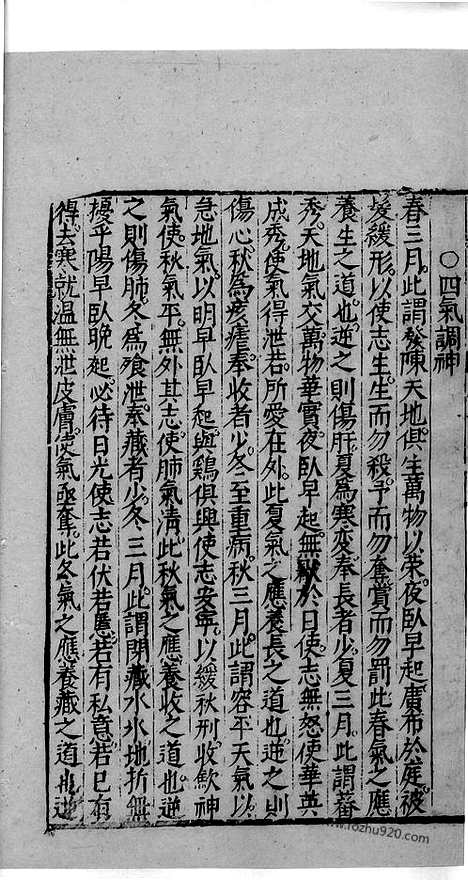 ○四氣調神
春三月此謂發陳天地俱生萬物以榮夜臥早起廣布於庭被
髮緩形以使志生生而勿殺予而勿奪賞而勿罰此春氣之應
養生之道也逆之則傷肝夏為寒變奉長者少夏三月此謂蕃
秀天地氣交萬物華實夜臥早起無厭於日使志無怒使華英
成秀使氣得泄若所愛在外此夏氣之應養長之道也逆之則
傷心秋為痎瘧奉收者少冬至重病秋三月此謂容平天氣以
急地氣以明早臥早起與鷄俱興使志安寧以緩秋刑收歛神
氣使秋氣平無外其志使肺氣清此秋氣之應養收之道也逆
之則傷肺冬爲飧泄奉藏者少冬三月此謂閉藏水氷地拆無
擾乎陽早臥晚起必待日光使志若伏若匿若有私意若已有
得去寒就温無泄皮膚使氣亟奪此冬氣之應養藏之道也逆
www.fozhu920.com